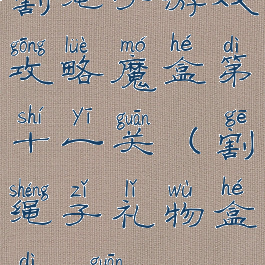 gōng lüè mó hé dì
攻略魔盒第
shí yī guān gē
十一关（割
shéng zǐ lǐ wù hé
绳子礼物盒
dì guān